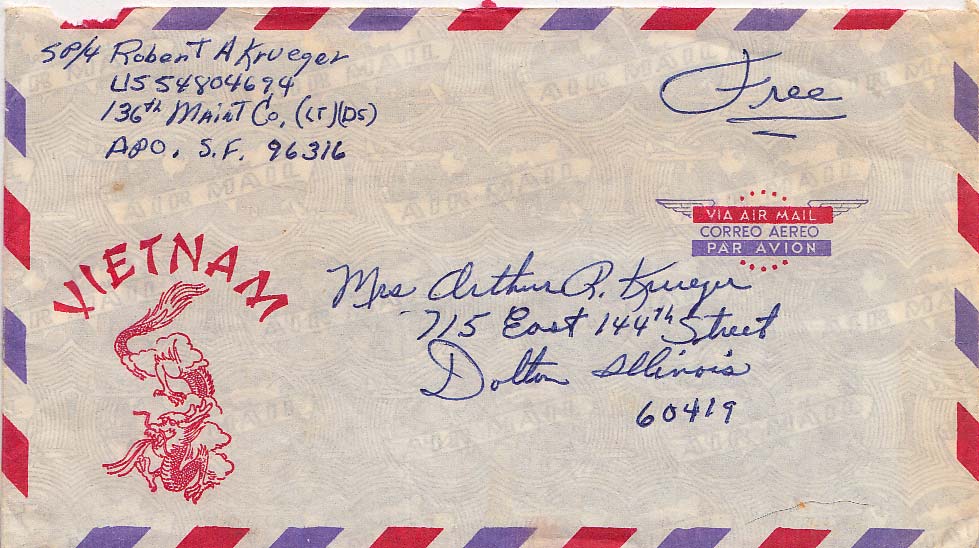 SP/4 Robert A Krueger
US 54804694
136th Maint Co, (LT)(DS)
APO. S.F. 96316
Free
VIA AIR MAIL
CORREO AEREO
PAR AVION
VIETNAM
Mrs Arthur R. Krueger
715 East 144th Street
Dolton Illinois
60419